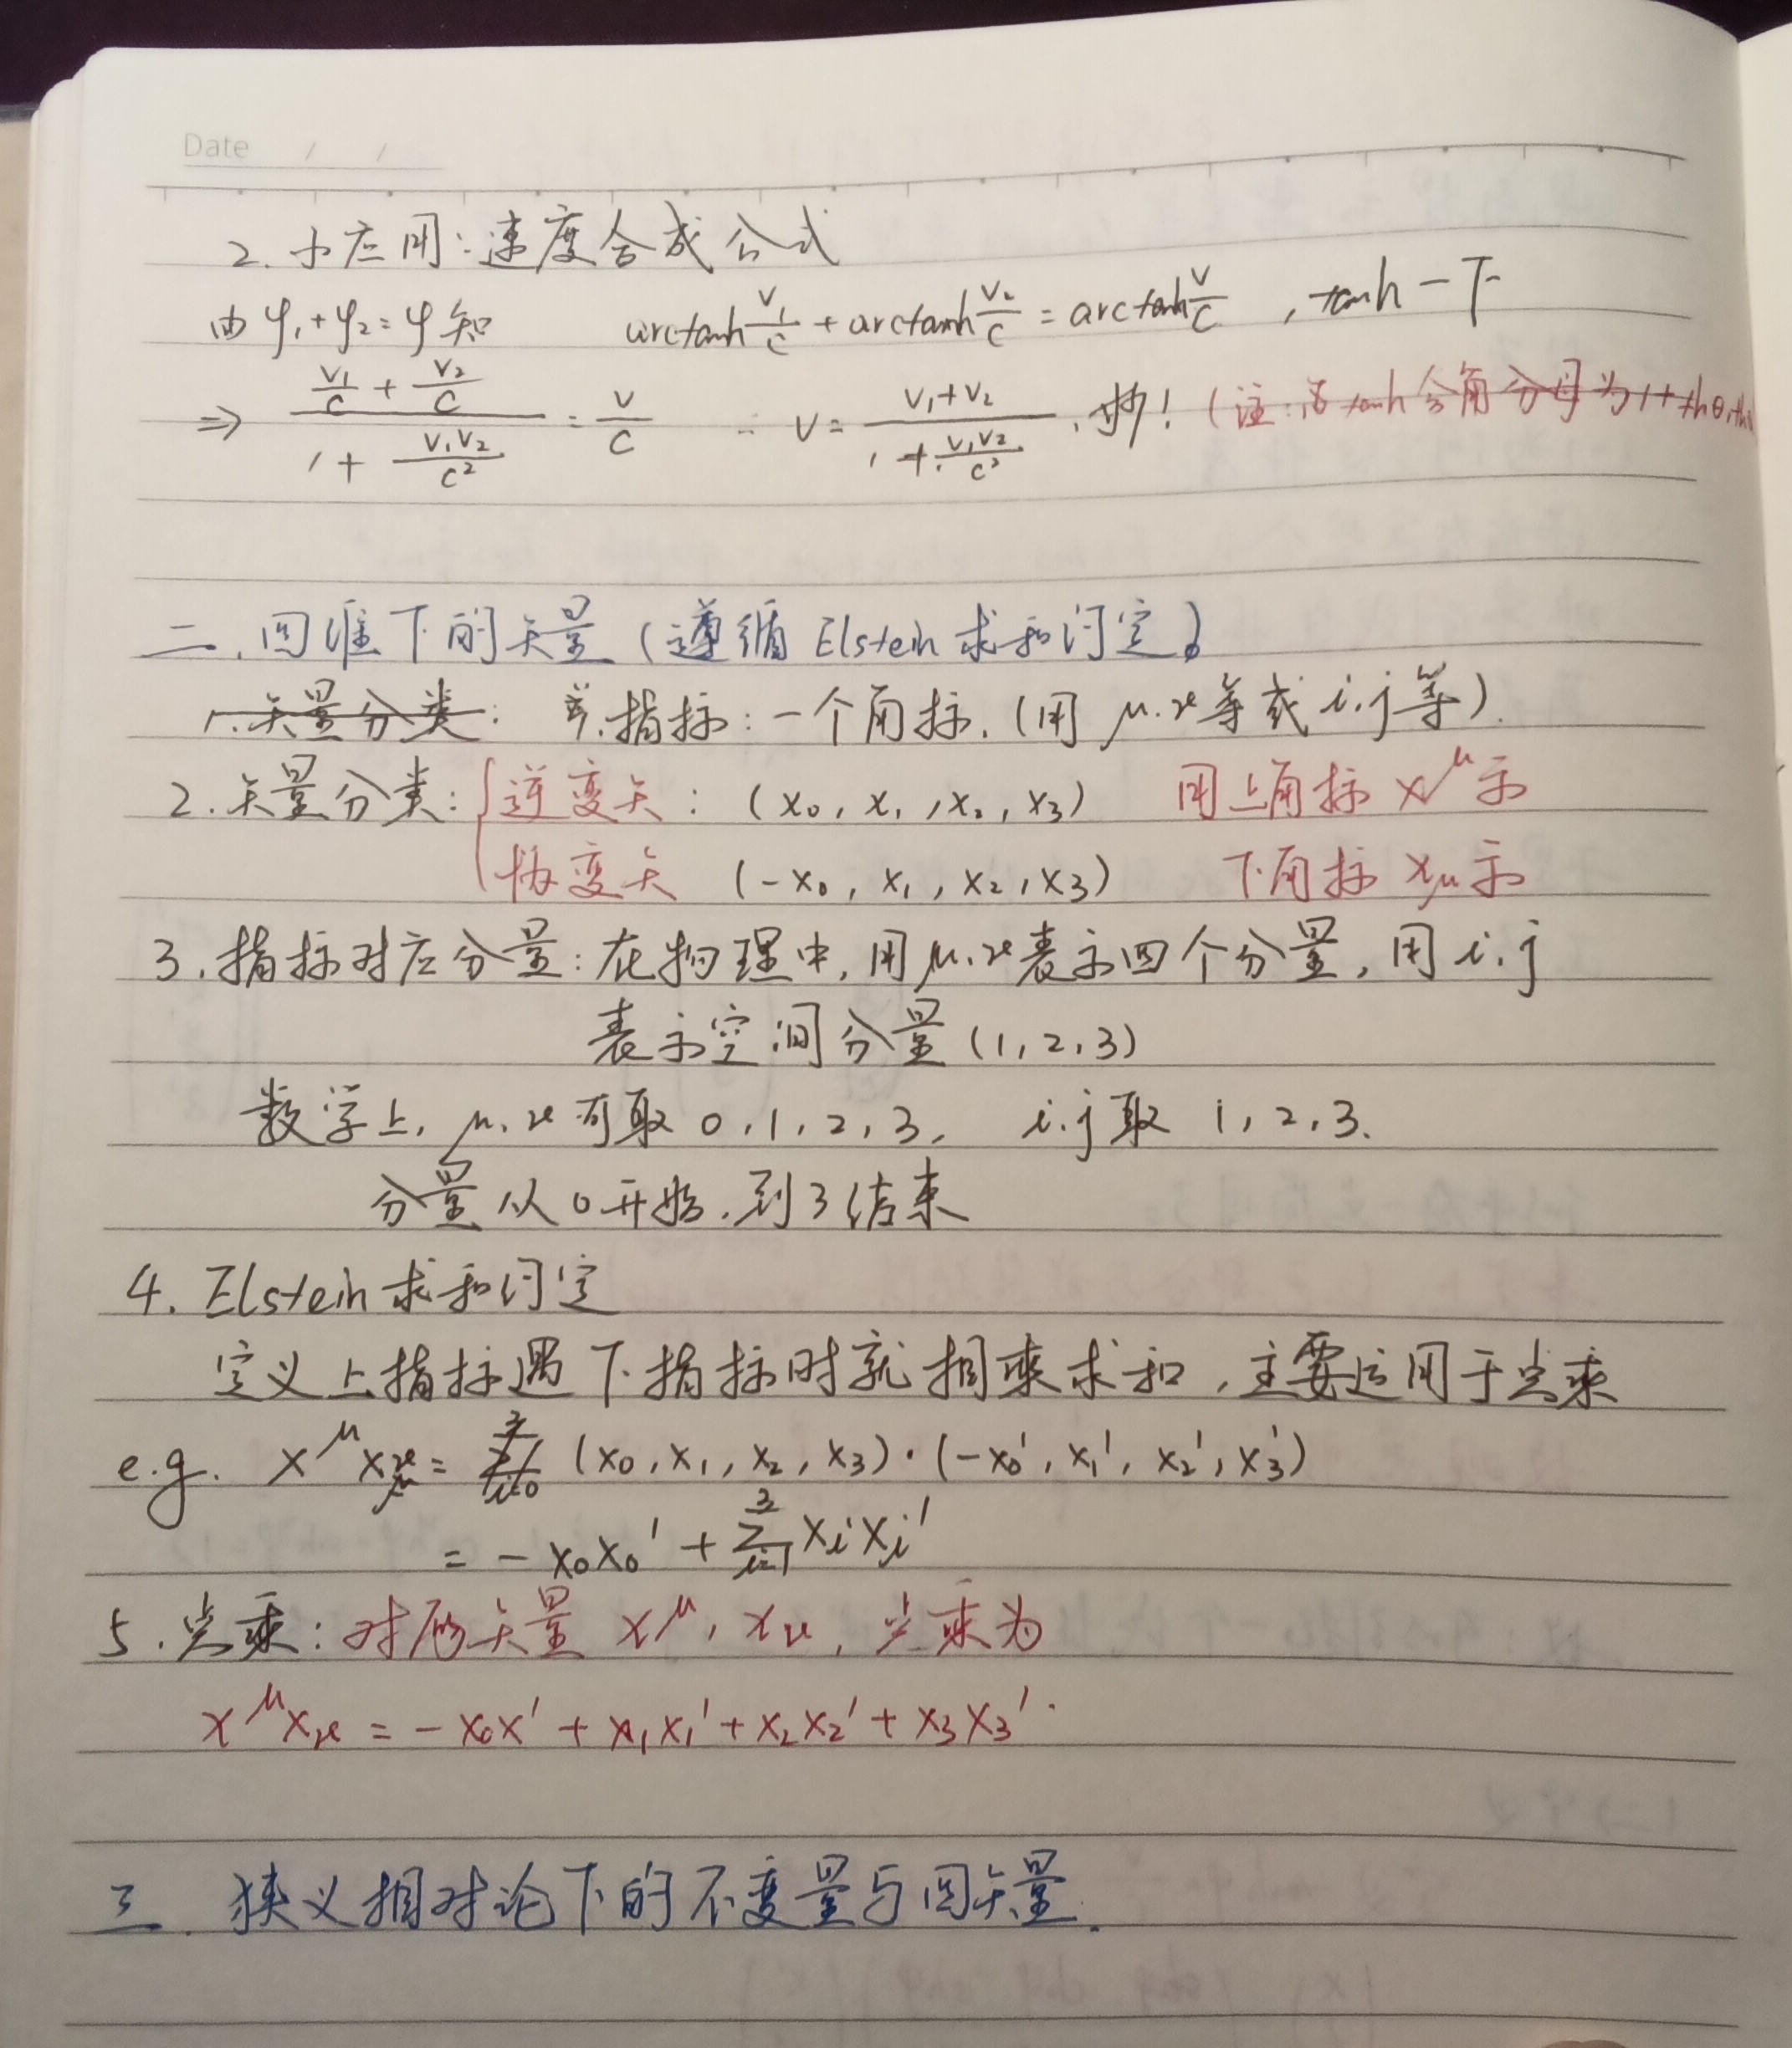 Date / /
2. 小应用:速度合成公式
由 φ₁+φ₂=φ 知 arctanh v₁/c + arctanh v₂/c = arctanh v/c , tanh一下
⇒ (v₁/c + v₂/c)/(1 + v₁v₂/c²) = v/c ∴ v = (v₁+v₂)/(1 + v₁v₂/c²) , 妙! (注: tanh 合角分母为 1+thθ₁th
二. 四维下的矢量 (遵循 Elstein 求和约定)
1. 矢量分类: 指标: 一个角标. (用 μ.ν等或 i.j等).
2. 矢量分类: { 逆变矢: (x₀, x₁, x₂, x₃) 用上角标 x^μ 示
协变矢 (-x₀, x₁, x₂, x₃) 下角标 x_μ 示
3. 指标对应分量: 在物理中, 用 μ.ν表示四个分量, 用 i.j
表示空间分量 (1, 2, 3)
数学上, μ.ν 可取 0, 1, 2, 3, i.j 取 1, 2, 3.
分量从 0 开始, 到 3 结束
4. Elstein 求和约定
定义上指标遇下指标时就相乘求和, 主要运用于点乘
e.g. x^μ x_ν = (x₀, x₁, x₂, x₃)·(-x₀', x₁', x₂', x₃')
= -x₀x₀' + Σ_{i=1}^{3} xᵢxᵢ'
5. 点乘: 对矢量 x^μ, x_ν, 点乘为
x^μ x_ν = -x₀x' + x₁x₁' + x₂x₂' + x₃x₃'.
三. 狭义相对论下的不变量与四矢量.